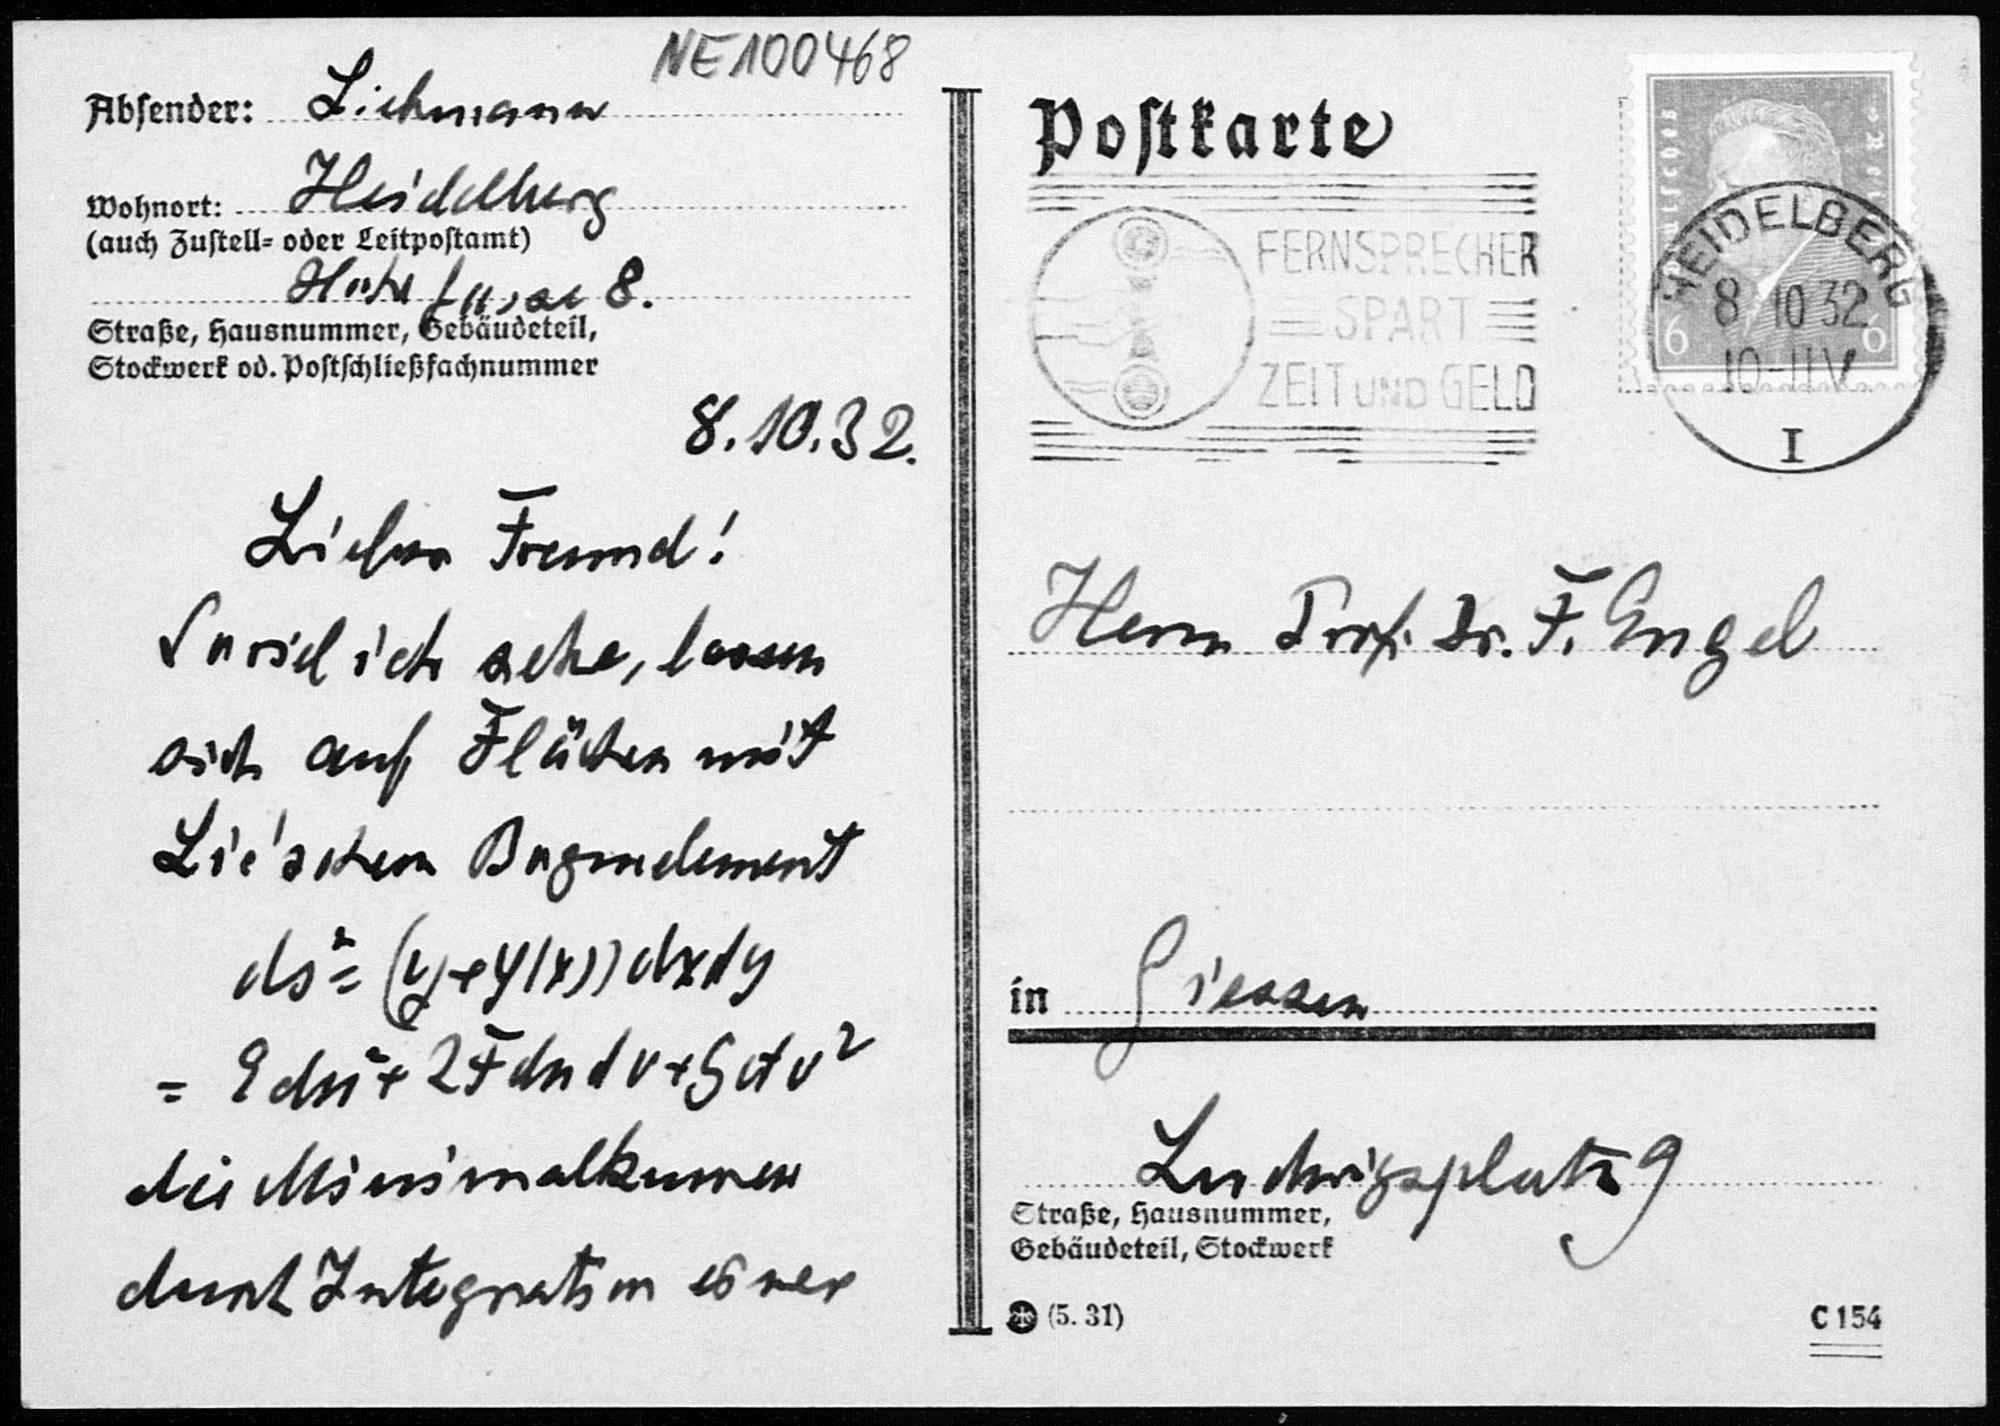 NE100468
Absender: Liebmann
Wohnort: Heidelberg
(auch Zustell- oder Leitpostamt)
8.
Straße, Hausnummer, Gebäudeteil,
Stockwerk od. Postschließfachnummer
8.10.32.
Lieber Freund!
Soviel ich sehe, lassen
sich auf Flächen mit
Lie'schem Bogenelement
ds² = (y+φ(x))dxdy
= Edu² + 2Fdudv + Gdv²
die Minimalkurven
durch Integration einer
Postkarte
FERNSPRECHER
SPART
ZEIT UND GELD
Deutsches Reich
6 6
HEIDELBERG
8 10 32
10-11V
I
Herrn Prof. Dr. F. Engel
in Giessen
Ludwigsplatz 9
Straße, Hausnummer,
Gebäudeteil, Stockwerk
(5. 31)
C 154